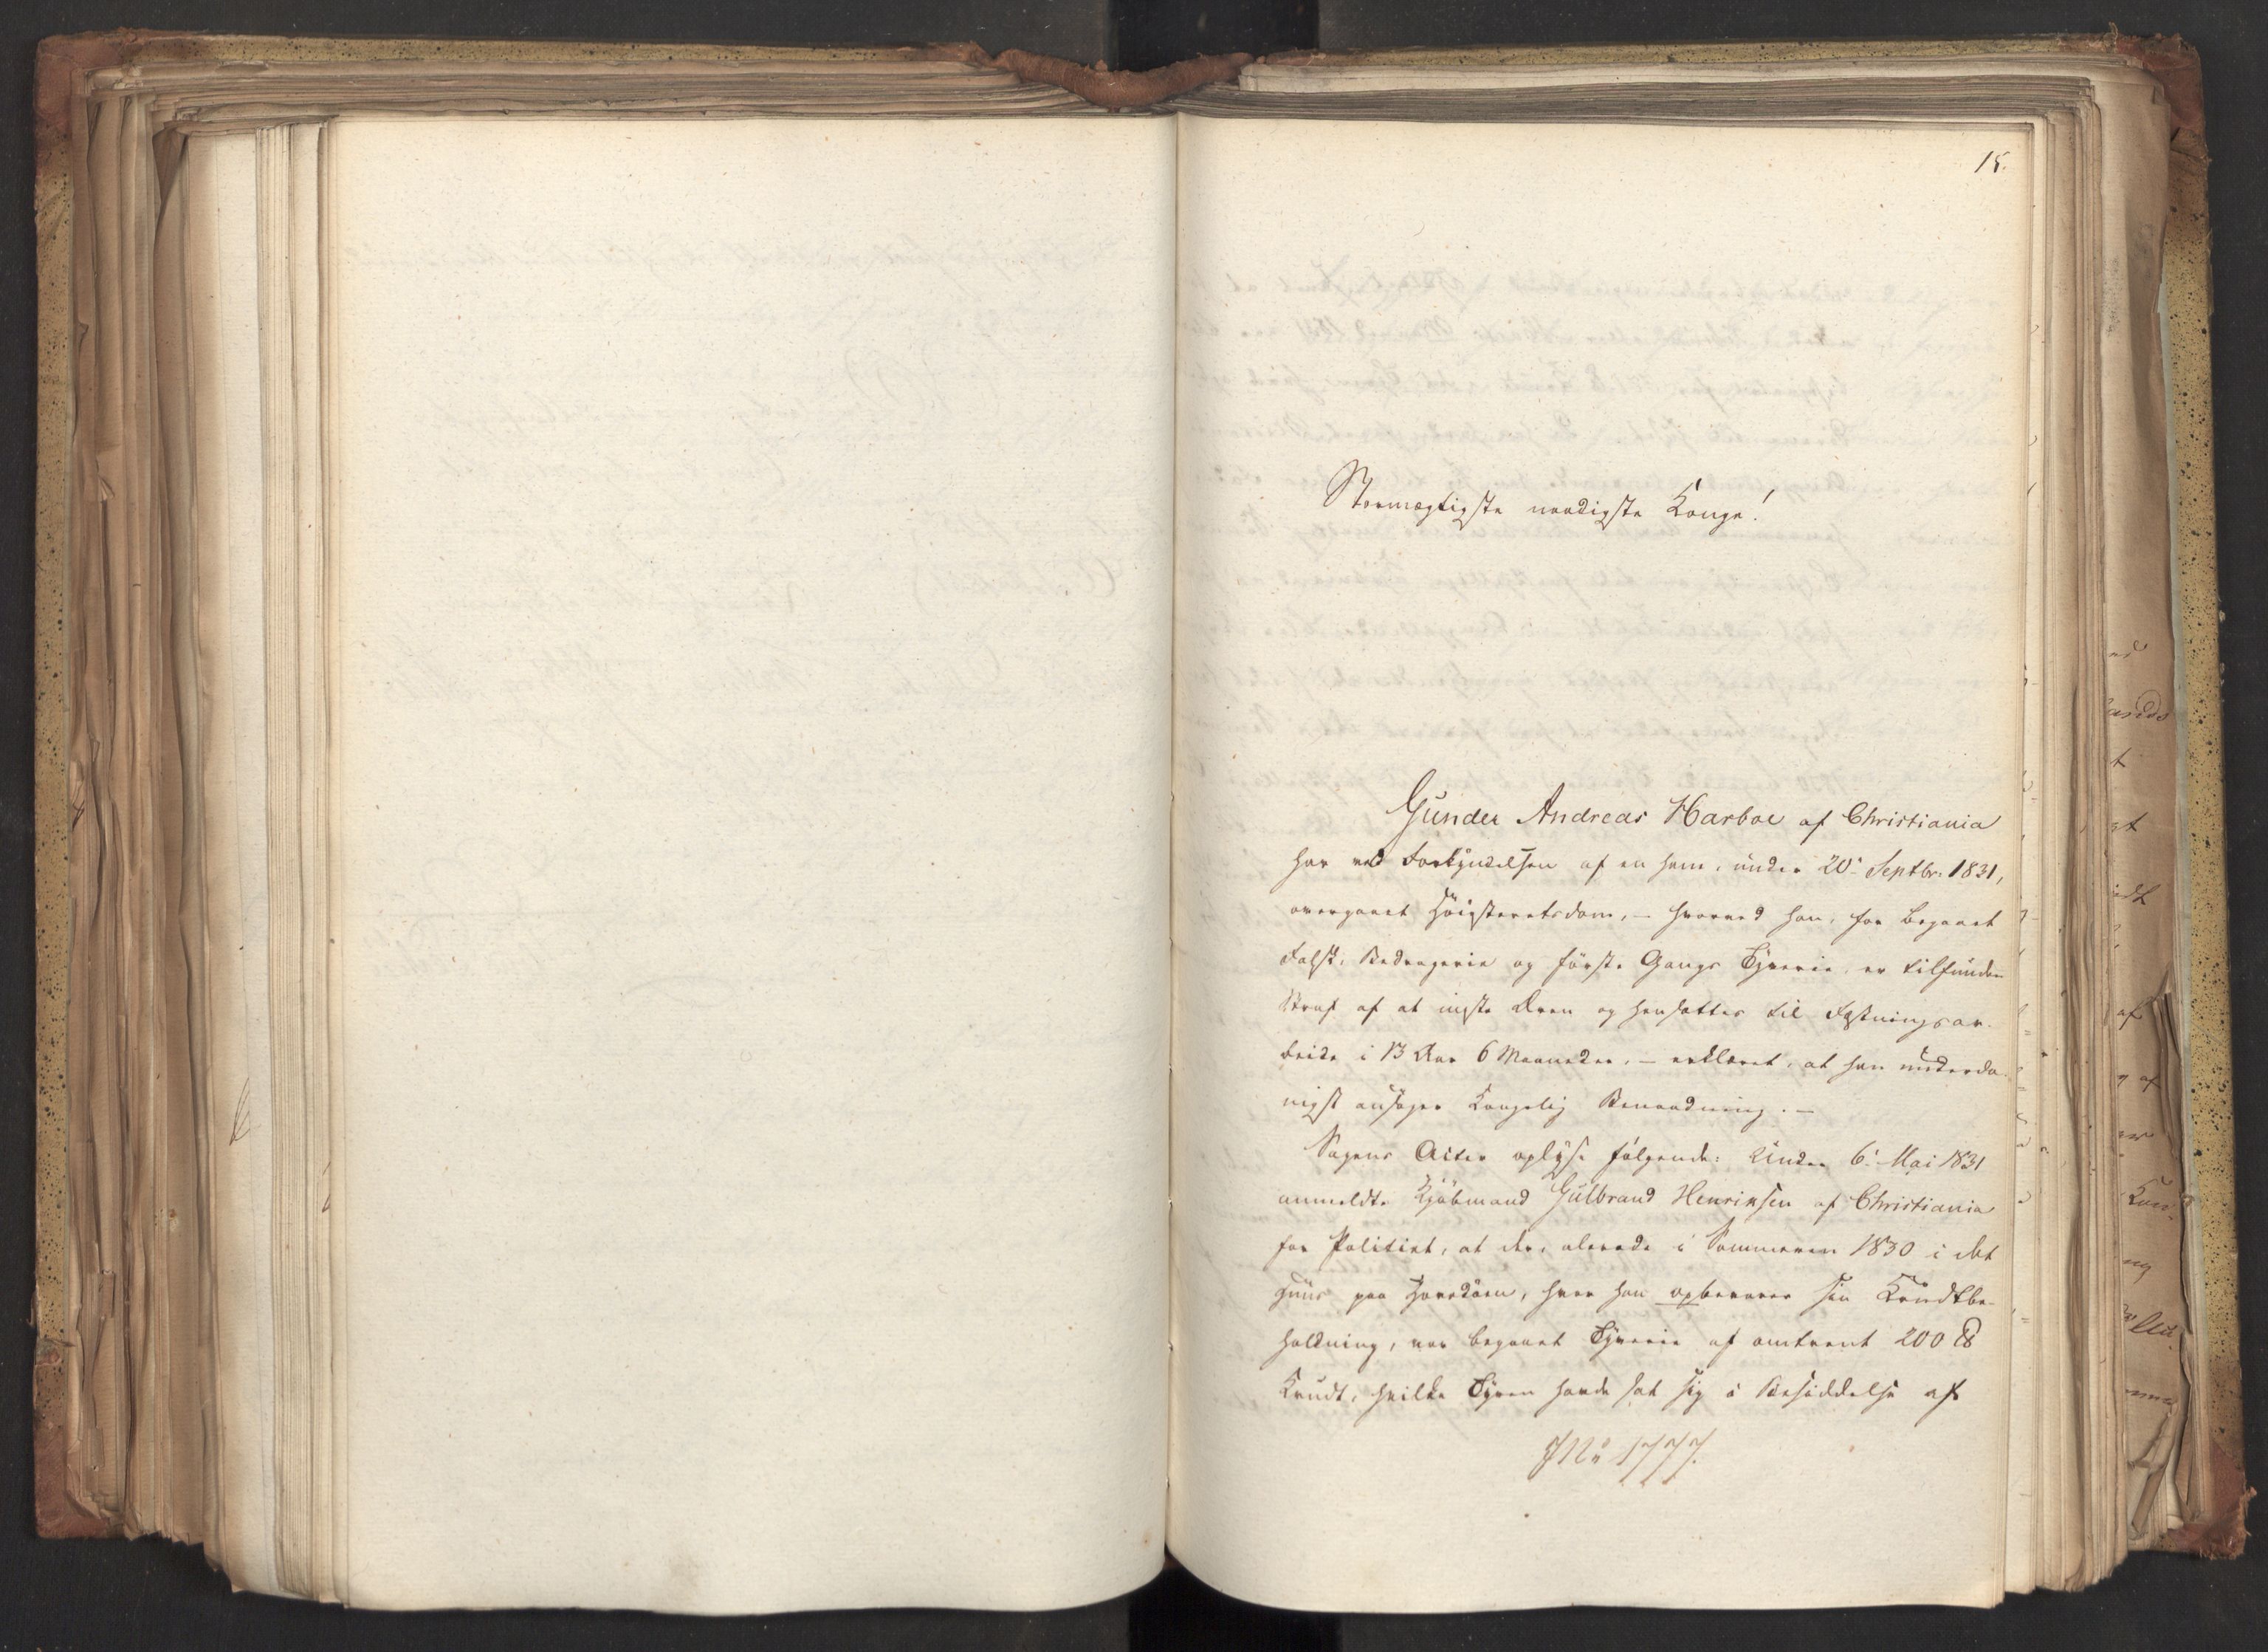 15.
Stormægtigste naadigste Konge!
Gunder Andreas Harboe af Christiania
har ved Forkyndelsen af en ham, under 20de Septbr. 1831,
overgaaet Høiesteretsdom, – hvorved han, for begaaet
Falsk, Bedragerie og første Gangs Tyverie, er tilfunden
Straf af at miste Æren og hensættes til Fæstningsar-
beide i 13 Aar 6 Maaneder, – erklæret, at han underda-
nigst ansøger Kongelig Benaadning. –
Sagens Acter oplyse følgende: Under 6te Mai 1831
anmeldte Kjøbmand Gulbrand Henriksen af Christiania
for Politiet, at der, allerede i Sommeren 1830 i det
Huus paa Hovedøen, hvor han opbevarer sin Krudtbe-
holdning, var begaaet Tyverie af omtrent 200 ℔
Krudt, hvilke Tyven havde sat sig i Besiddelse af
JNo 1777.